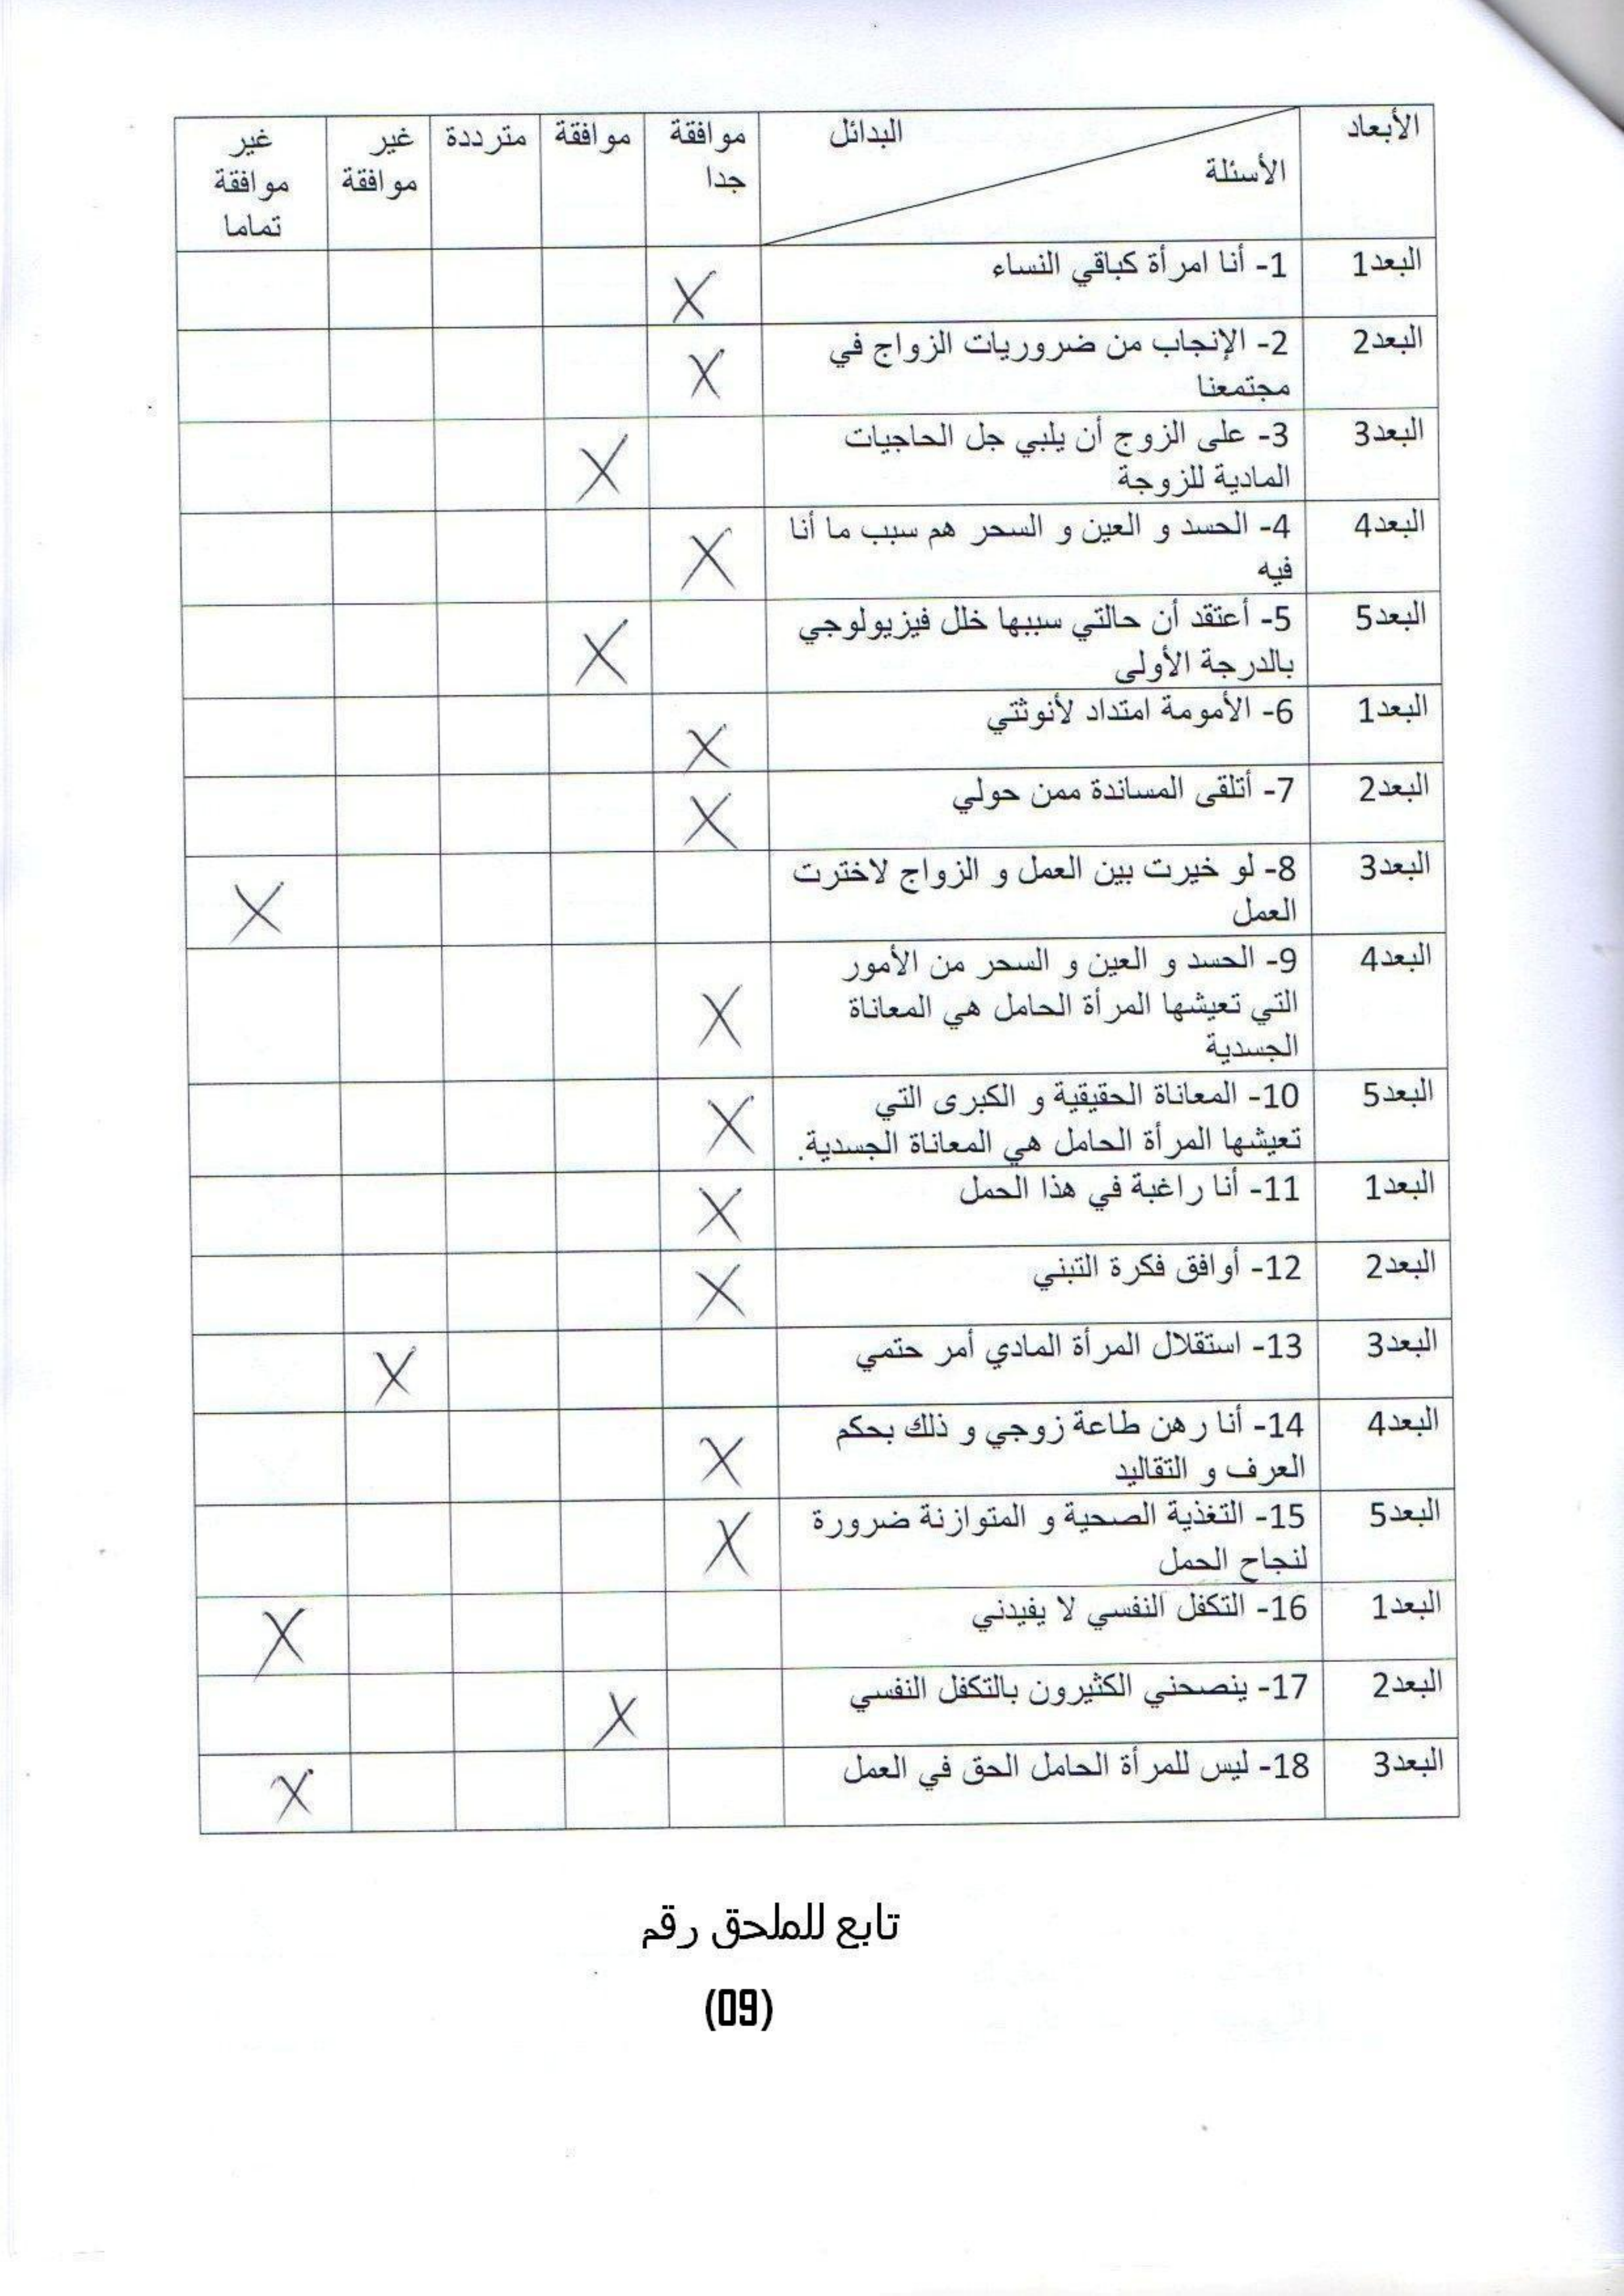 الأبعاد البدائل موافقة موافقة مترددة غير غير
الأسئلة جدا موافقة موافقة
تماما
البعد1 1- أنا امرأة كباقي النساء X
البعد2 2- الإنجاب من ضروريات الزواج في X
مجتمعنا
البعد3 3- على الزوج أن يلبي جل الحاجيات X
المادية للزوجة
البعد4 4- الحسد و العين و السحر هم سبب ما أنا X
فيه
البعد5 5- أعتقد أن حالتي سببها خلل فيزيولوجي X
بالدرجة الأولى
البعد1 6- الأمومة امتداد لأنوثتي X
البعد2 7- أتلقى المساندة ممن حولي X
البعد3 8- لو خيرت بين العمل و الزواج لاخترت X
العمل
البعد4 9- الحسد و العين و السحر من الأمور
التي تعيشها المرأة الحامل هي المعاناة X
الجسدية
البعد5 10- المعاناة الحقيقية و الكبرى التي X
تعيشها المرأة الحامل هي المعاناة الجسدية.
البعد1 11- أنا راغبة في هذا الحمل X
البعد2 12- أوافق فكرة التبني X
البعد3 13- استقلال المرأة المادي أمر حتمي X
البعد4 14- أنا رهن طاعة زوجي و ذلك بحكم X
العرف و التقاليد
البعد5 15- التغذية الصحية و المتوازنة ضرورة X
لنجاح الحمل
البعد1 16- التكفل النفسي لا يفيدني X
البعد2 17- ينصحني الكثيرون بالتكفل النفسي X
البعد3 18- ليس للمرأة الحامل الحق في العمل X
تابع للملحق رقم
(09)